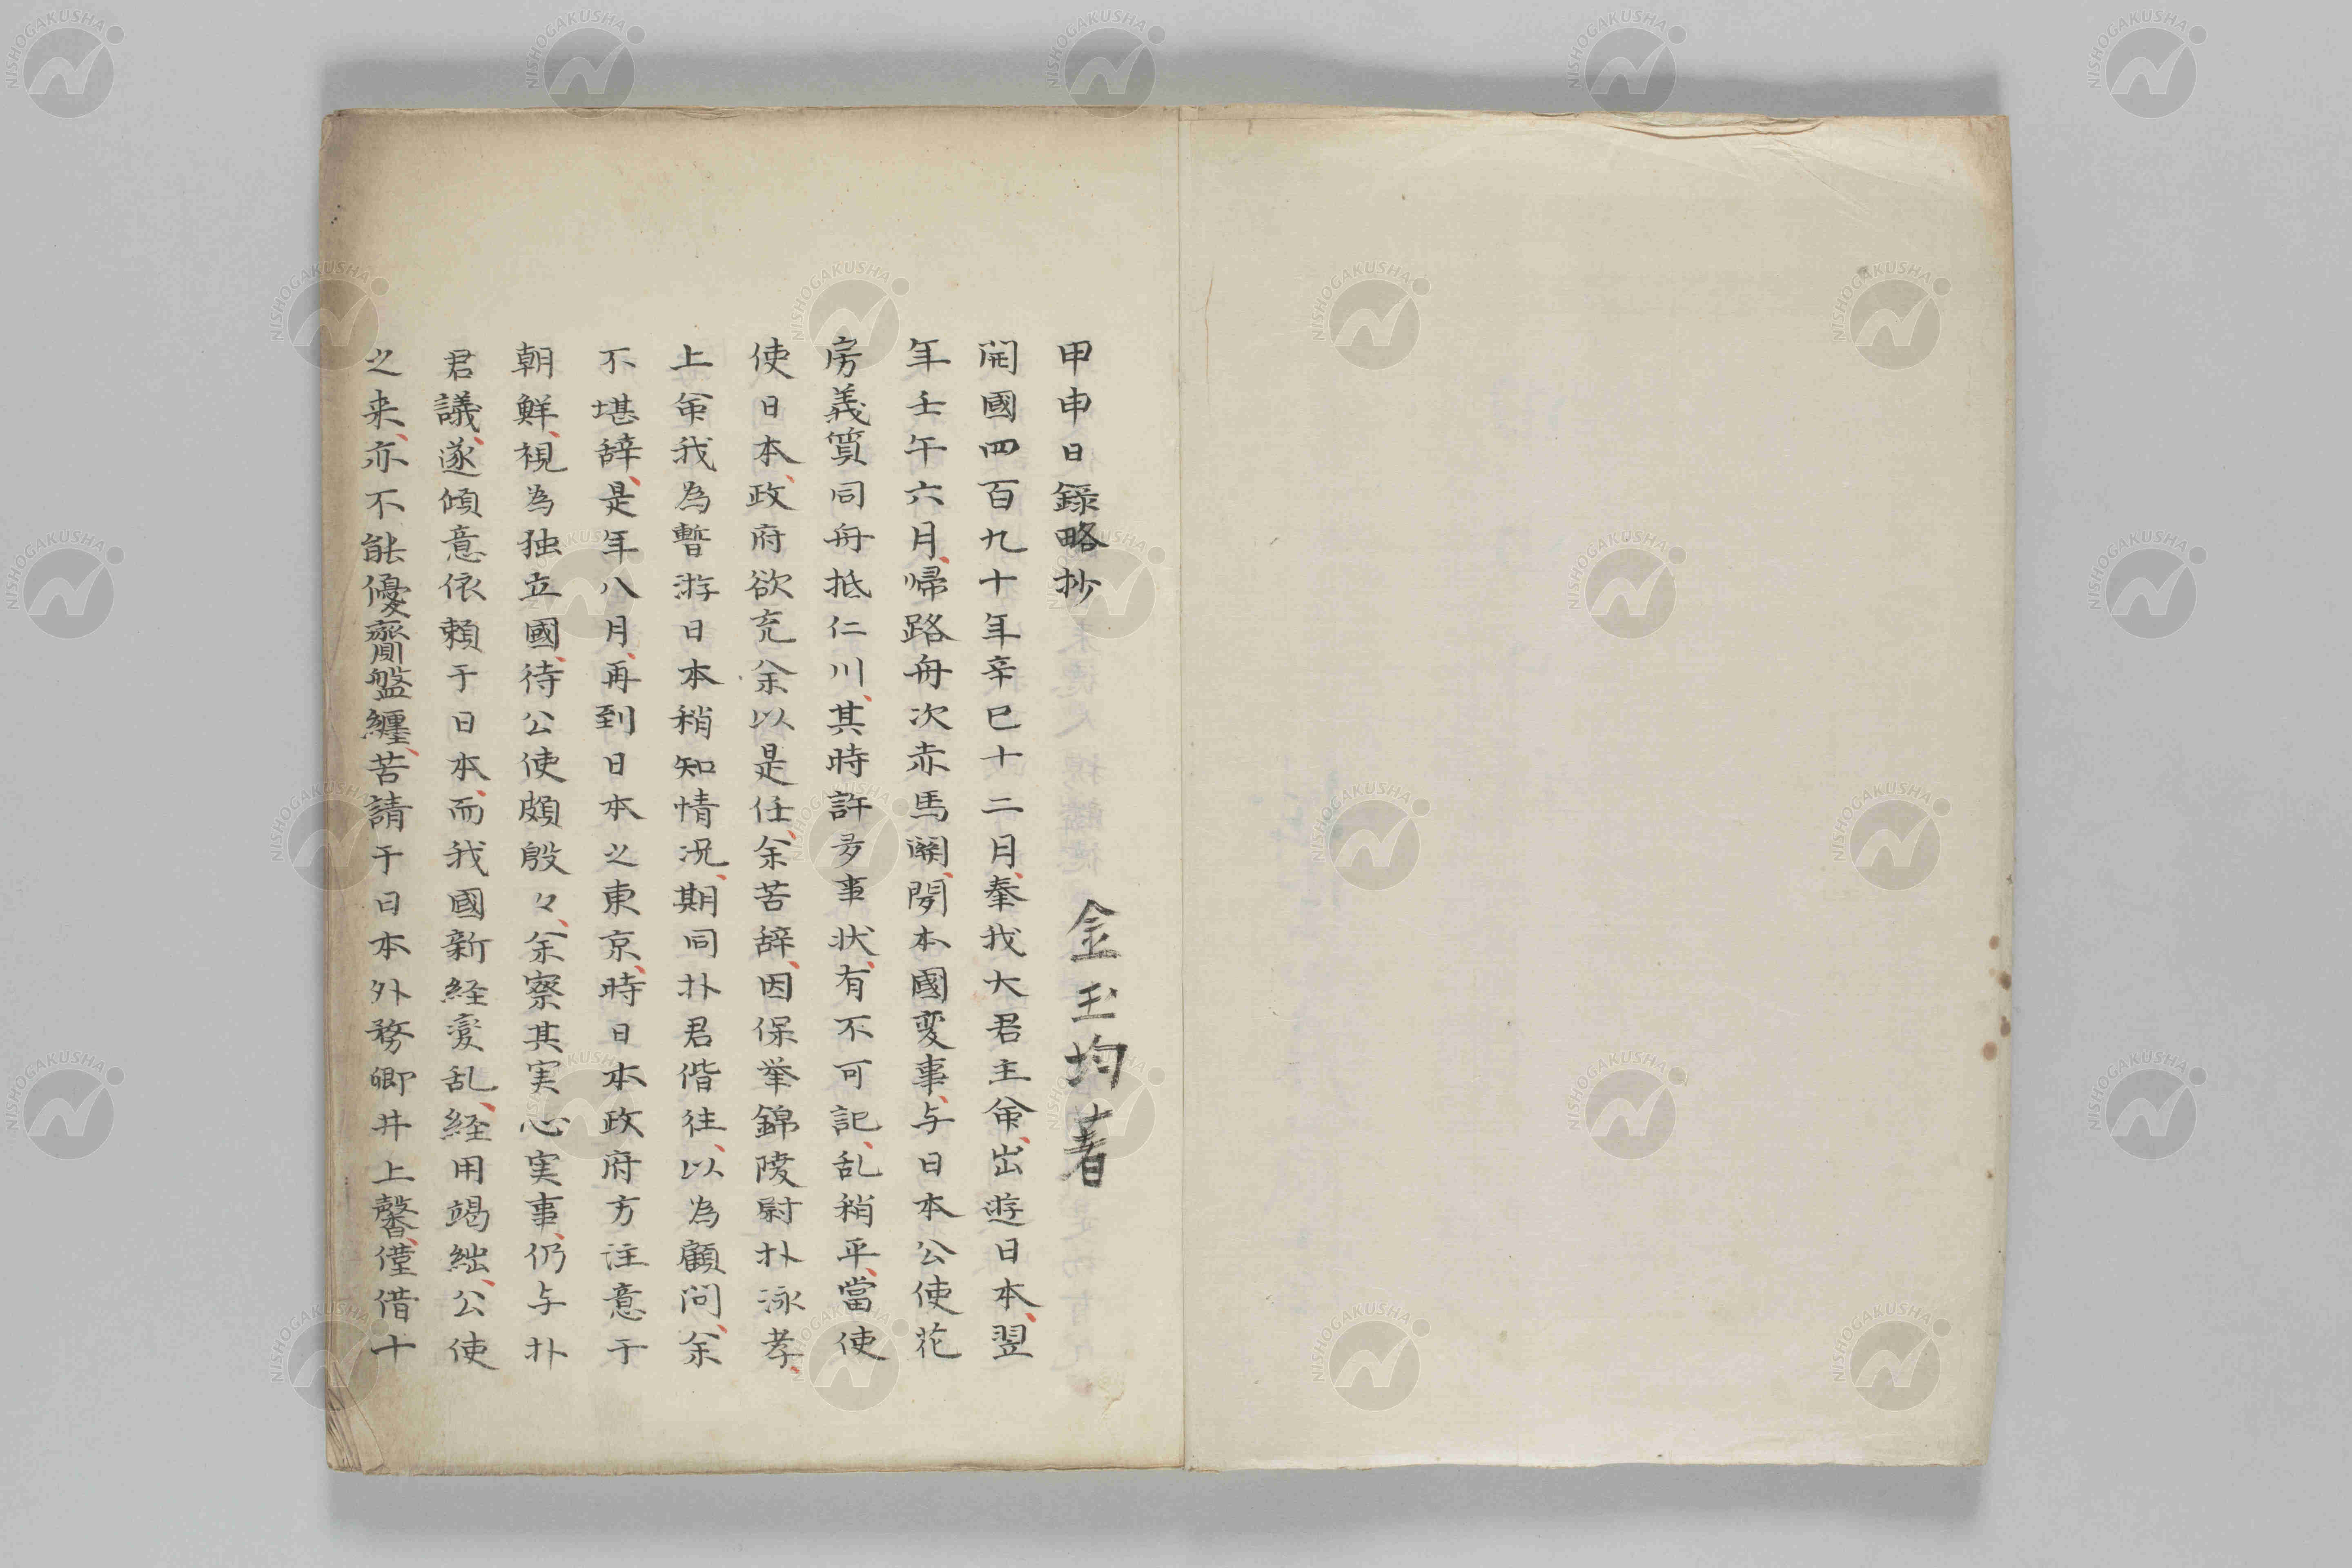 甲申日録略抄　金玉均著
開國四百九十年辛巳十二月、奉我大君主命、出遊日本、翌
年壬午六月、帰路舟次赤馬関、聞本國変事、与日本公使花
房義質同舟抵仁川、其時許多事状、有不可記、乱稍平、當使
使日本、政府欲充余以是任、余苦辞、因保挙錦陵尉朴泳孝、
上命我為暫游日本稍知情况、期同朴君偕往、以為顧問、余
不堪辞、是年八月、再到日本之東京、時日本政府方注意于
朝鮮、視為独立國、待公使頗殷々、余察其実心実事、仍与朴
君議、遂傾意依頼于日本、而我國新経変乱、経用竭絀、公使
之来、亦不能優齎盤纏、苦請于日本外務卿井上馨、僅借十
NISHOGAKUSHA